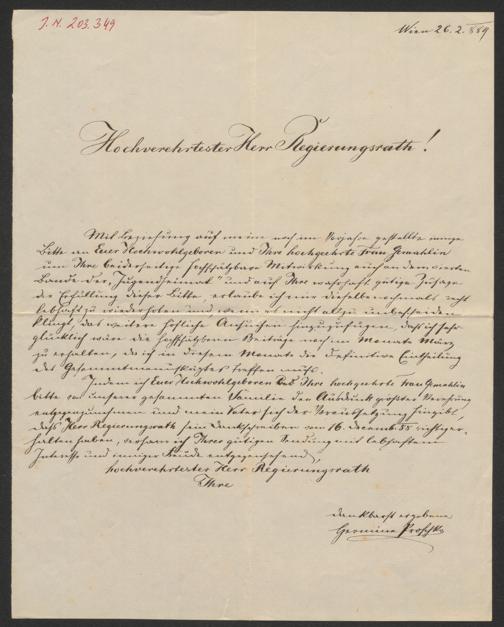 J. N. 203.349
Wien 26.2.889
Hochverehrtester Herr Regierungsrath!
Mit Beziehung auf meine noch im Vorjahre gestellte innige
Bitte an Euer Hochwohlgeboren und Ihre hochgeehrte Frau Gemahlin
um Ihre beiderseitige hochschätzbare Mitwirkung auch an dem vierten
Bande der „Jugendheimat" und auf Ihre wahrhaft gütige Zusage
der Erfüllung dieser Bitte, erlaube ich mir dieselbe nochmals recht
lebhaft zu wiederholen und wenn es nicht allzu unbescheiden
klingt, das weitere höfliche Ansuchen hinzuzufügen, daß ich sehr
glücklich wäre die hochschätzbaren Beiträge noch im Monate März
zu erhalten, da ich in diesem Monate die definitive Eintheilung
des Gesammtmanuskriptes treffen muß.
Indem ich Euer Hochwohlgeboren und Ihre hochgeehrte Frau Gemahlin
bitte von unserer gesammten Familie den Ausdruck größter Verehrung
entgegenzunehmen und mein Vater sich der Voraussetzung hingibt,
daß Herr Regierungsrath sein Dankschreiben vom 16. Dezemb. 88 richtig er-
halten haben, sehe ich Ihrer gütigen Sendung mit lebhaftem
Interesse und inniger Freude entgegensehend,
hochverehrtester Herr Regierungsrath
Ihre
dankbarst ergebene
Hermine Proschko